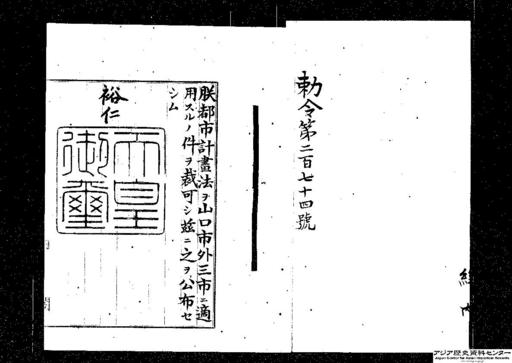 勅令第二百七十四號
朕都市計畫法ヲ山口市外三市ニ適
用スルノ件ヲ裁可シ茲ニ之ヲ公布セ
シム
裕仁
天皇
御璽
アジア歴史資料センター
Japan Center for Asian Historical Records